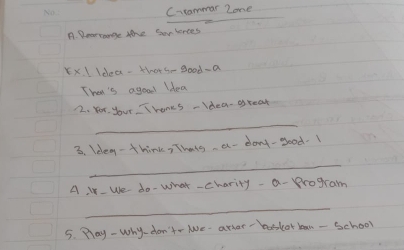 Grammar Zone
A. Rearrange the Sentences
Ex. 1 Idea - that's - good - a
That's a good Idea
2. for - your - Thanks - Idea - great
3. Idea - think, Thats - a - don't - good - I
4. if - we - do - what - charity - a - Program
5. Play - why - don't - we - after - basket ball - School